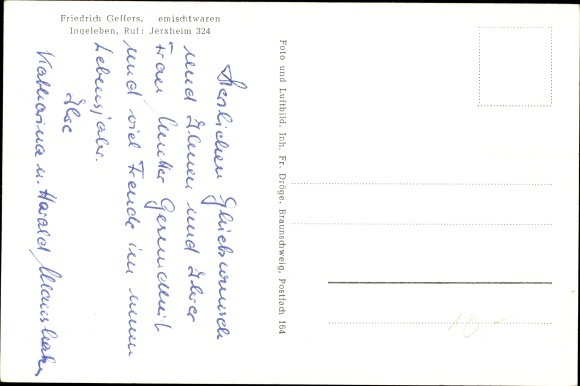 Friedrich Geffers, emischtwaren
Ingeleben, Ruf: Jerxheim 324
Herzlichen Glückwunsch
und Ihnen und Ihrer
Frau Mutter Gesundheit
und viel Freude im neuen
Lebensjahr.
Ihre
Katharina u. Harald
Foto und Luftbild, Inh. Fr. Dröge, Braunschweig, Postfach 164